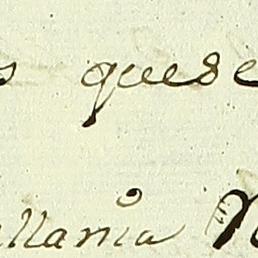 s quese
llania